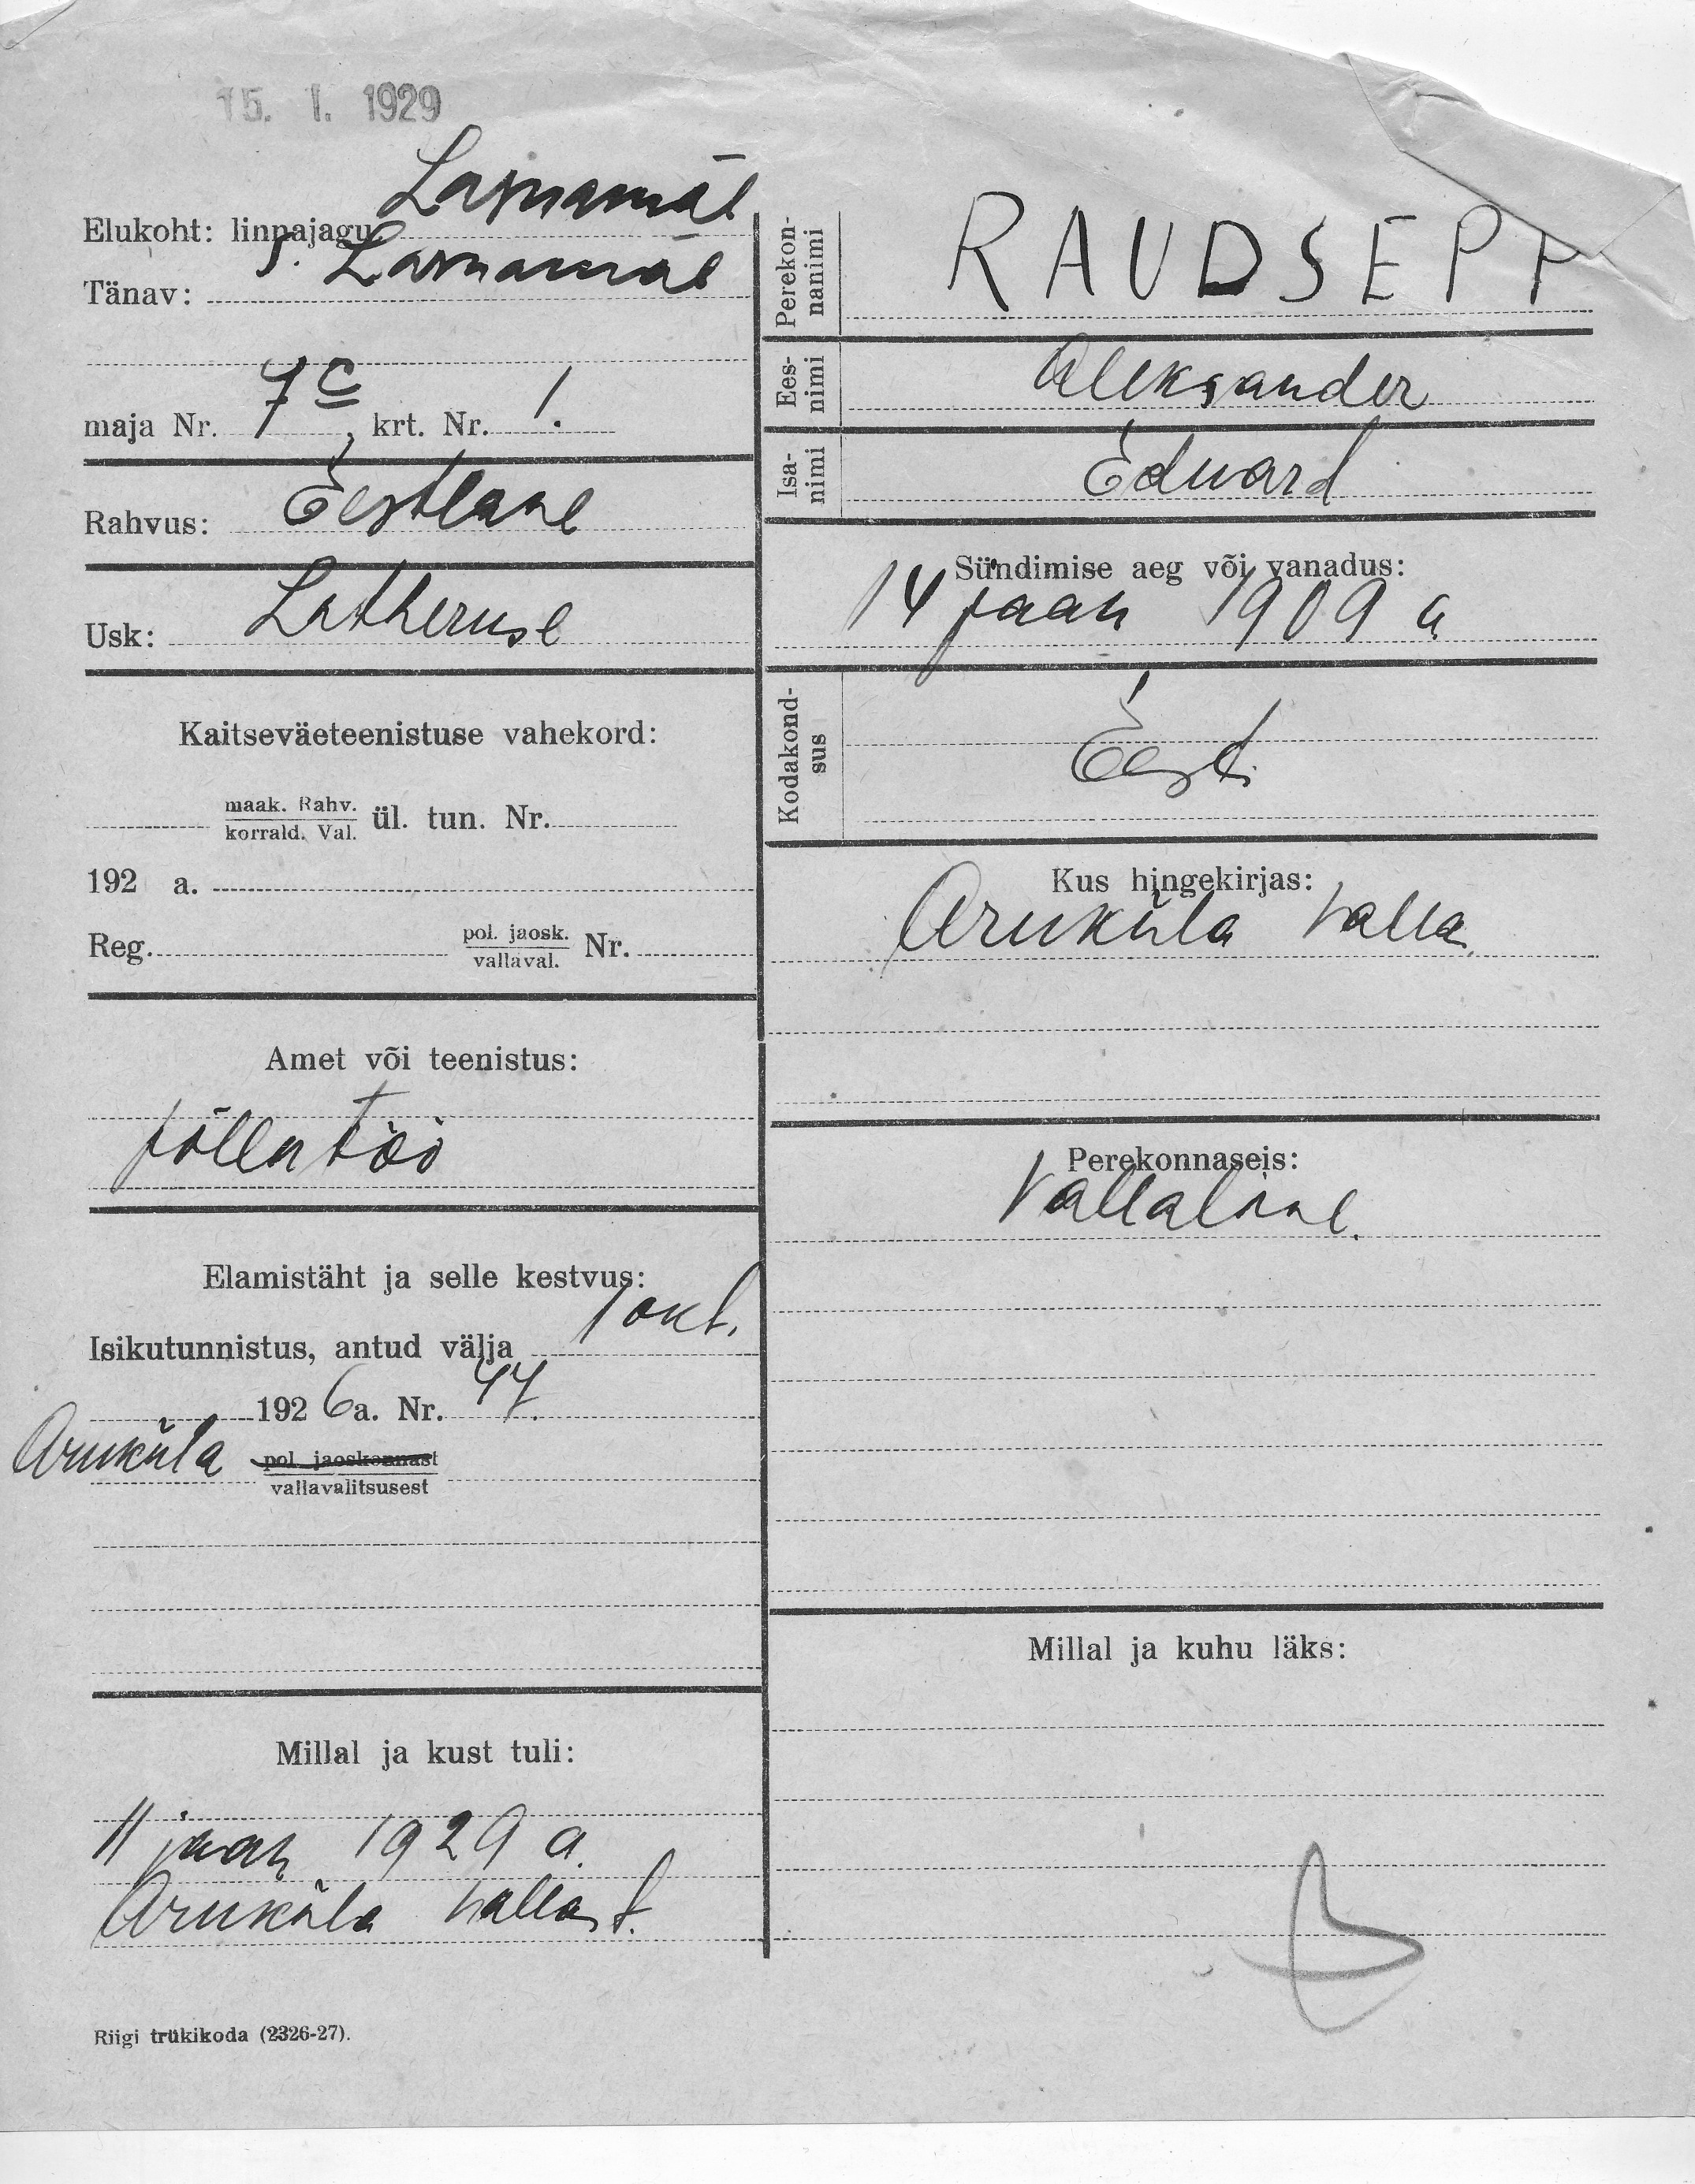 15. I. 1929
Elukoht: linnajagu Lasnamäe
Tänav: S. Lasnamäe
maja Nr. 7c, krt. Nr. 1.
Rahvus: Eestlane
Usk: Lutheruse
Kaitseväeteenistuse vahekord:
maak. Rahv.
korrald. Val. ül. tun. Nr.
192 a.
Reg. pol. jaosk. Nr.
vallaval.
Amet või teenistus:
põllu töö
Elamistäht ja selle kestvus:
Isikutunnistus, antud välja 1 okt.
1926 a. Nr. 47.
Aruküla pol. jaoskonnast
vallavalitsusest
Millal ja kust tuli:
11 jaan 1929 a.
Aruküla vallast.
Riigi trükikoda (2326-27).
Perekon-
nanimi
RAUDSEPP
Ees-
nimi
Aleksander
Isa-
nimi
Eduard
Sündimise aeg või vanadus:
14 jaan 1909 a
Kodakond-
sus
Eesti
Kus hingekirjas:
Aruküla valla.
Perekonnaseis:
Vallaline.
Millal ja kuhu läks: